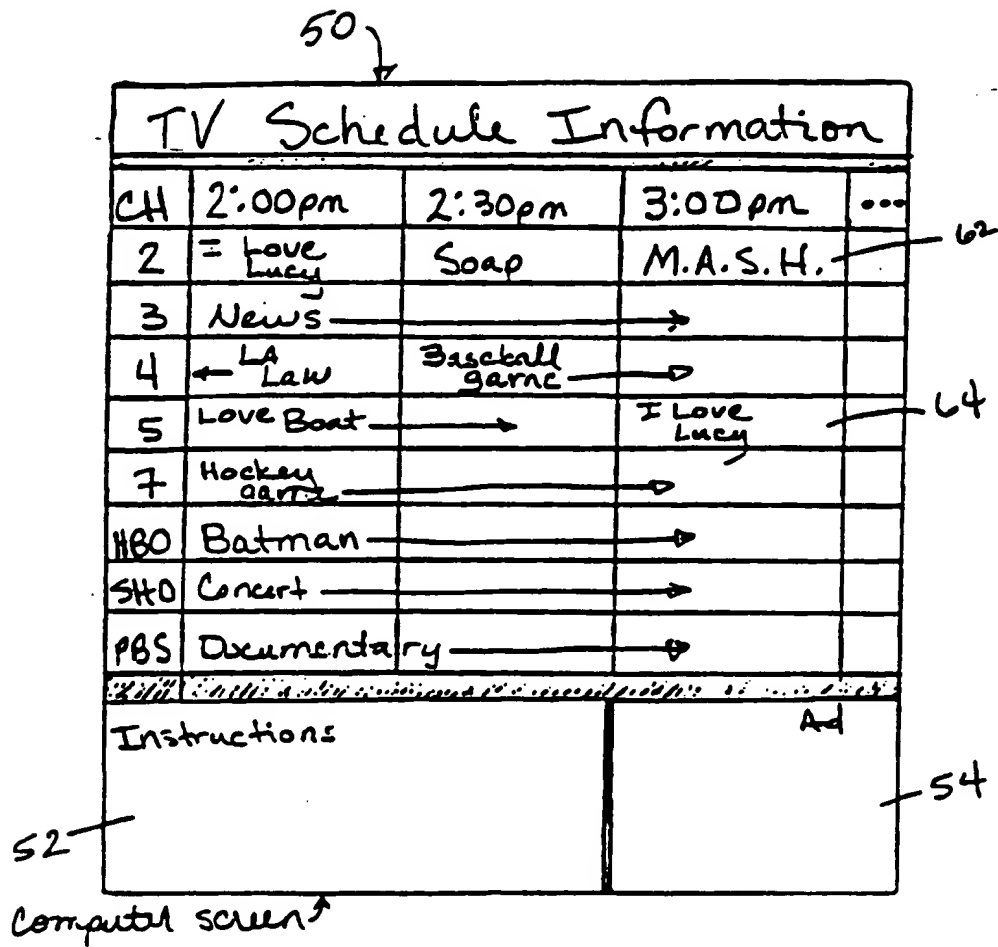 50
TV Schedule Information
CH 2:00pm 2:30pm 3:00pm •••
2 I Love Lucy Soap M.A.S.H. 62
3 News
4 LA Law Baseball game
5 Love Boat I Love Lucy 64
7 Hockey game
HBO Batman
SHO Concert
PBS Documentary
Instructions Ad
52 54
Computer screen